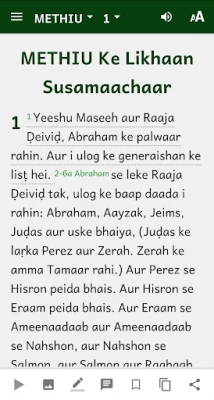 METHIU 1 AA
METHIU Ke Likhaan
Susamaachaar
1 1 Yeeshu Maseeh aur Raaja
Ḍeiviḍ, Abraham ke palwaar
rahin. Aur i ulog ke generaishan ke
lisṭ hei. 2-6a Abraham se leke Raaja
Ḍeiviḍ tak, ulog ke baap daada i
rahin: Abraham, Aayzak, Jeims,
Juḍas aur uske bhaiya, (Juḍas ke
laṛka Perez aur Zerah. Zerah ke
amma Tamaar rahi.) Aur Perez se
Hisron peida bhais. Aur Hisron se
Eraam peida bhais. Aur Eraam se
Ameenaadaab aur Ameenaadaab
se Nahshon, aur Nahshon se
Salmon, aur Salmon aur Raahaab